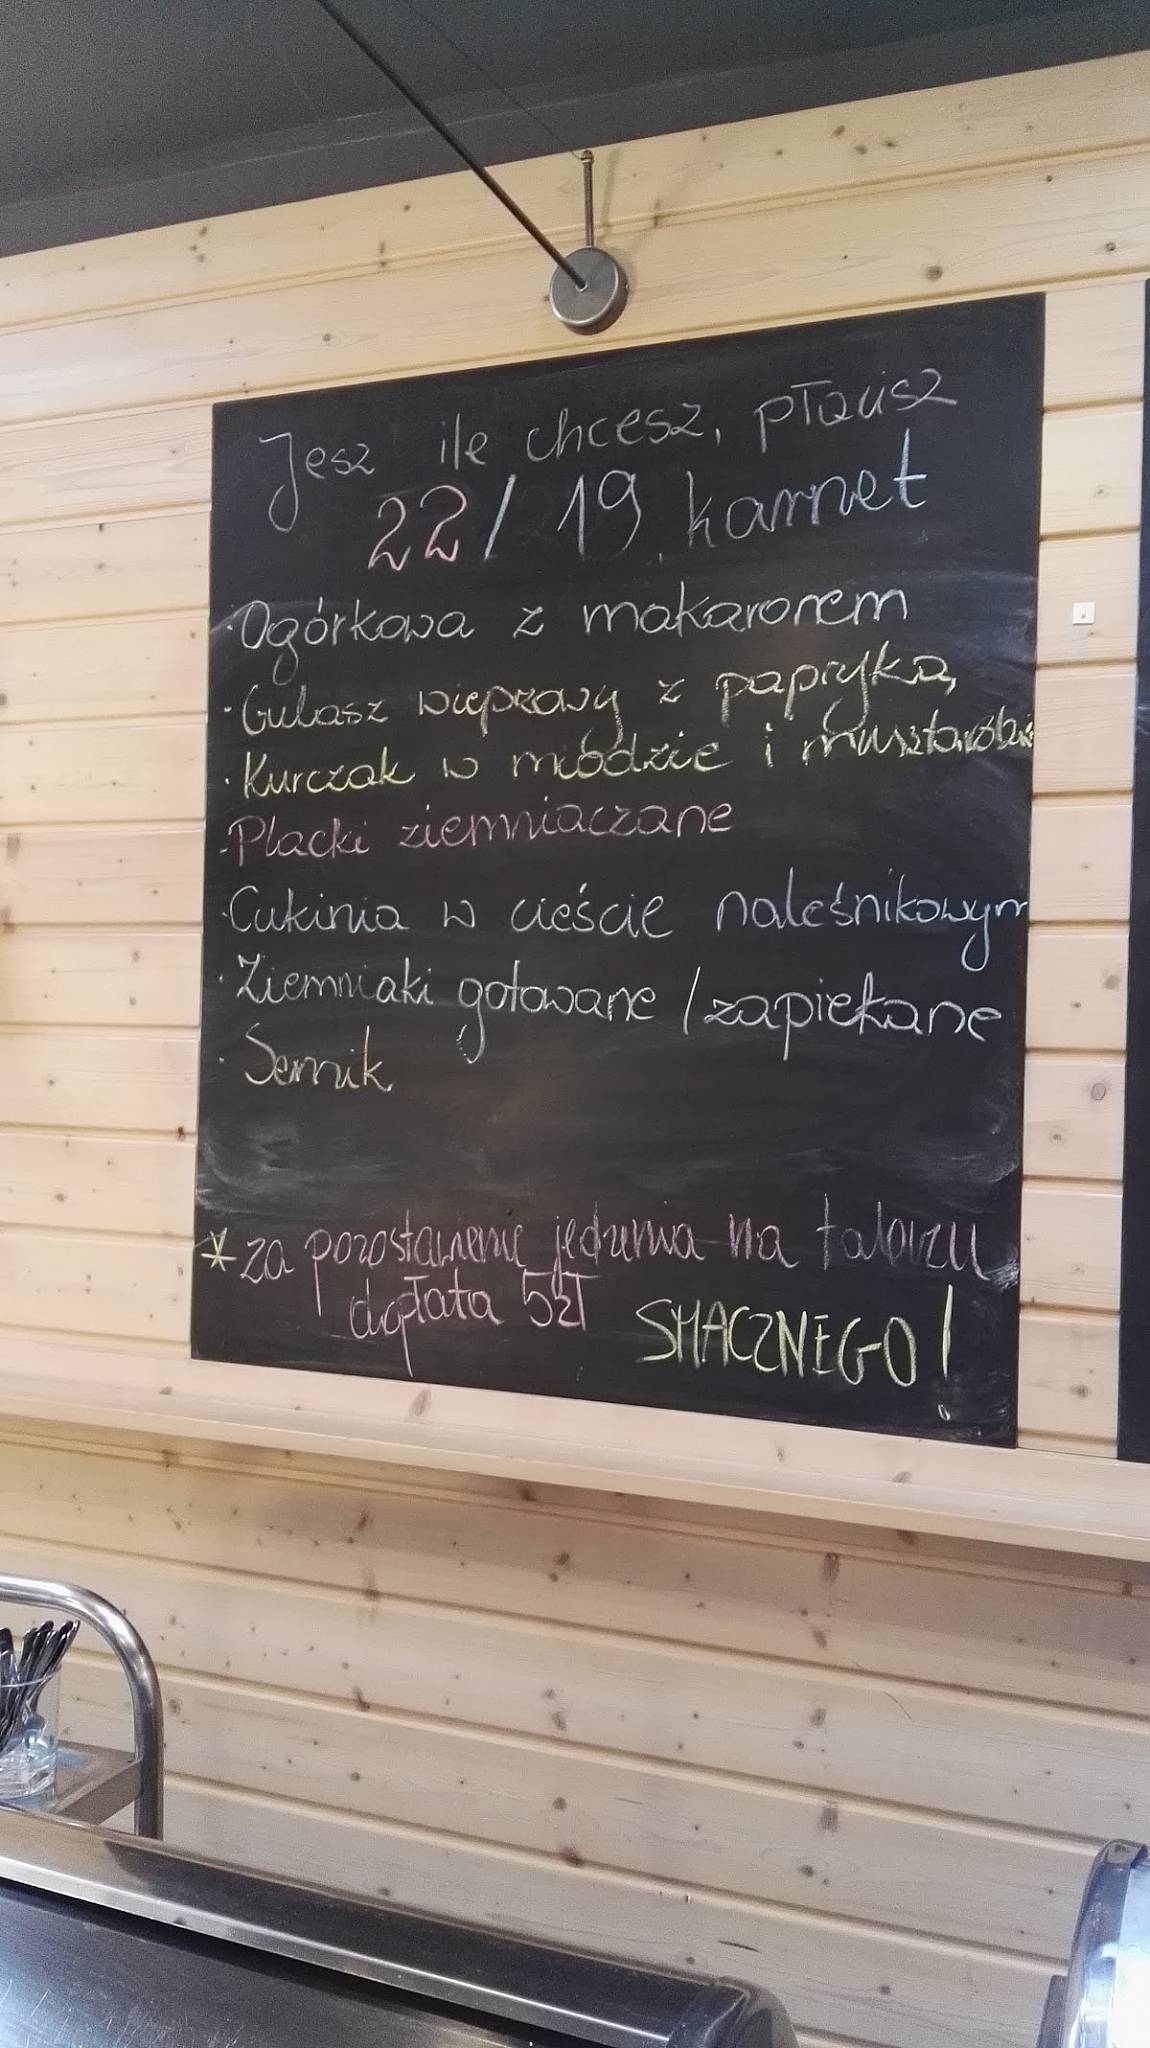 Jesz ile chcesz, płacisz
22/19 karnet
· Ogórkowa z makaronem
· Gulasz wieprzowy z papryką
· Kurczak w miodzie i musztardzie
- Placki ziemniaczane
· Cukinia w cieście naleśnikowym
· Ziemniaki gotowane / zapiekane
· Sernik
* za pozostawienie jedzenia na talerzu
dopłata 5zł SMACZNEGO!